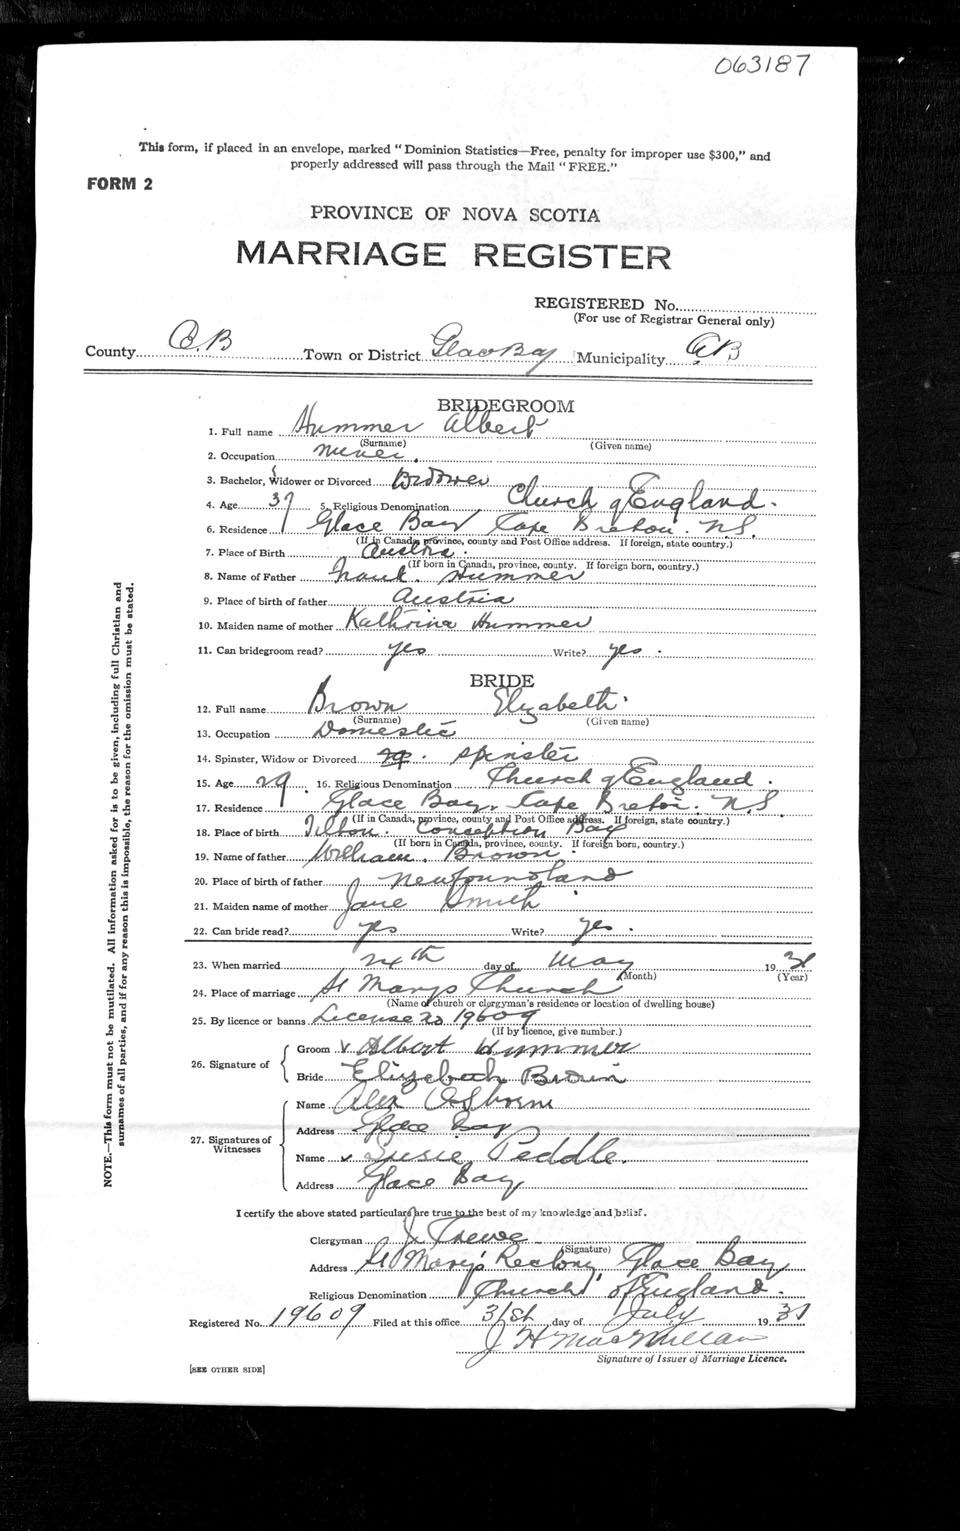 063187
This form, if placed in an envelope, marked "Dominion Statistics—Free, penalty for improper use $300," and
properly addressed will pass through the Mail "FREE."
FORM 2
PROVINCE OF NOVA SCOTIA
MARRIAGE REGISTER
REGISTERED No.
(For use of Registrar General only)
County C.B Town or District Glace Bay Municipality C.B
BRIDEGROOM
1. Full name Hummer Albert
(Surname) (Given name)
2. Occupation miner.
3. Bachelor, Widower or Divorced Widower
4. Age 37 5. Religious Denomination Church of England.
6. Residence Glace Bay Cape Breton. N.S.
(If in Canada, province, county and Post Office address. If foreign, state country.)
7. Place of Birth Austria.
(If born in Canada, province, county. If foreign born, country.)
8. Name of Father Frank Hummer
9. Place of birth of father Austria
10. Maiden name of mother Kathrina Hummer
11. Can bridegroom read? yes Write? yes.
BRIDE
12. Full name Brown Elizabeth
(Surname) (Given name)
13. Occupation Domestic
14. Spinster, Widow or Divorced spinster
15. Age 29. 16. Religious Denomination Church of England.
17. Residence Glace Bay, Cape Breton. N.S.
(If in Canada, province, county and Post Office address. If foreign, state country.)
18. Place of birth Tilton. Conception Bay
(If born in Canada, province, county. If foreign born, country.)
19. Name of father William. Brown.
20. Place of birth of father Newfoundland
21. Maiden name of mother Jane Smith
22. Can bride read? yes Write? yes.
23. When married day of May 1931
(Month) (Year)
24. Place of marriage St Marys Church
(Name of church or clergyman's residence or location of dwelling house)
25. By licence or banns License no 19609
(If by licence, give number.)
26. Signature of Groom v Albert Hummer
Bride Elizebeth Brown
27. Signatures of Witnesses
Name Alex Osborne
Address Glace Bay
Name v Susie Peddle.
Address Glace Bay
I certify the above stated particulars are true to the best of my knowledge and belief.
Clergyman J. Trewe
(Signature)
Address St Mary's Rectory, Glace Bay
Religious Denomination Church of England.
Registered No. 19609 Filed at this office 31st day of July 1931
J H MacMillan
Signature of Issuer of Marriage Licence.
[SEE OTHER SIDE]
NOTE.—This form must not be mutilated. All information asked for is to be given, including full Christian and
surnames of all parties, and if for any reason this is impossible, the reason for the omission must be stated.